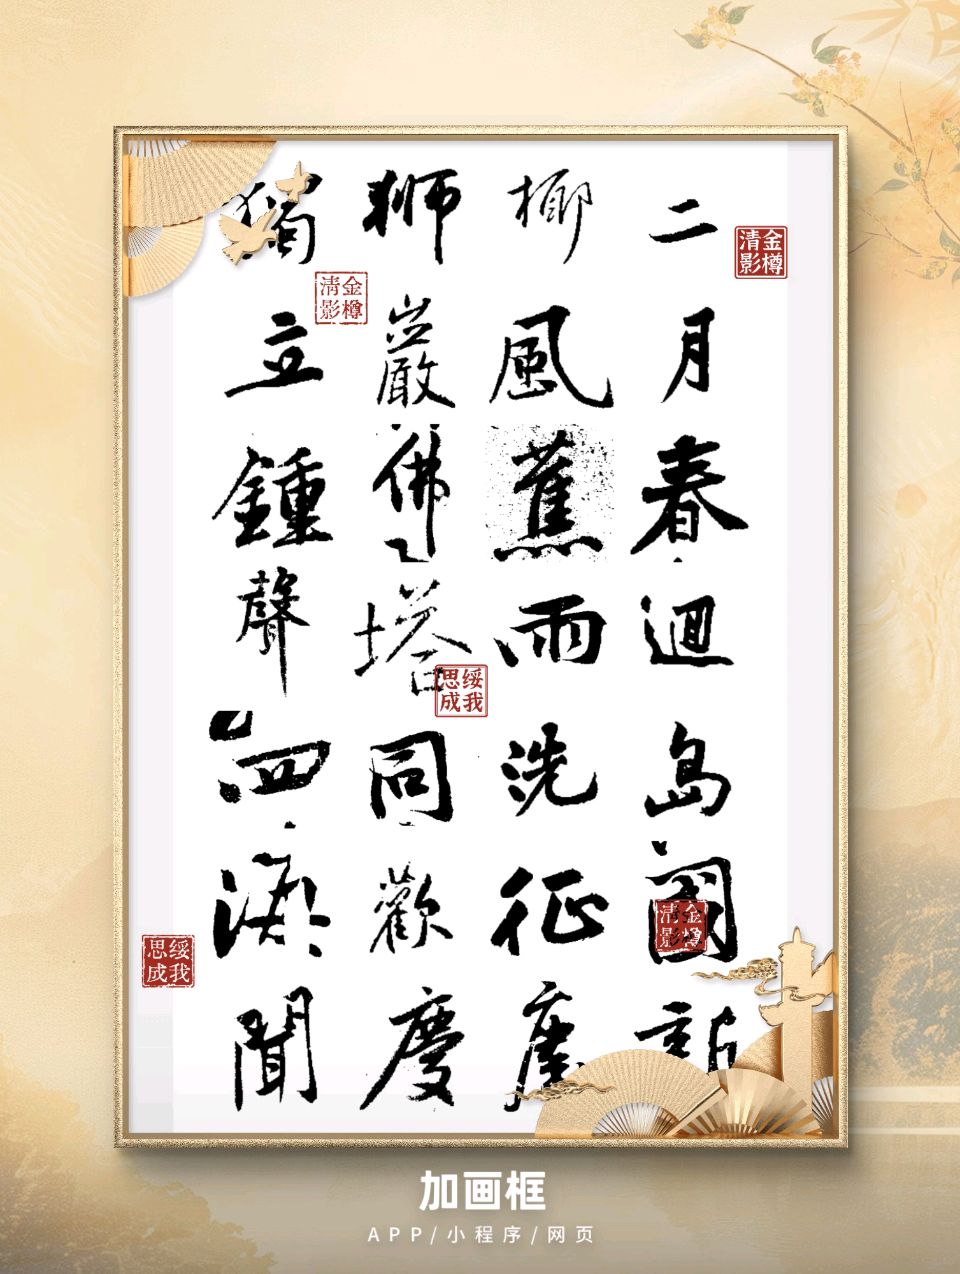 二月春迴島國新
椰風蕉雨洗征塵
獅巖佛塔同歡慶
獨立鍾聲四海聞
金樽清影
金樽清影
绥我思成
金樽清影
绥我思成
加画框
APP/小程序/网页